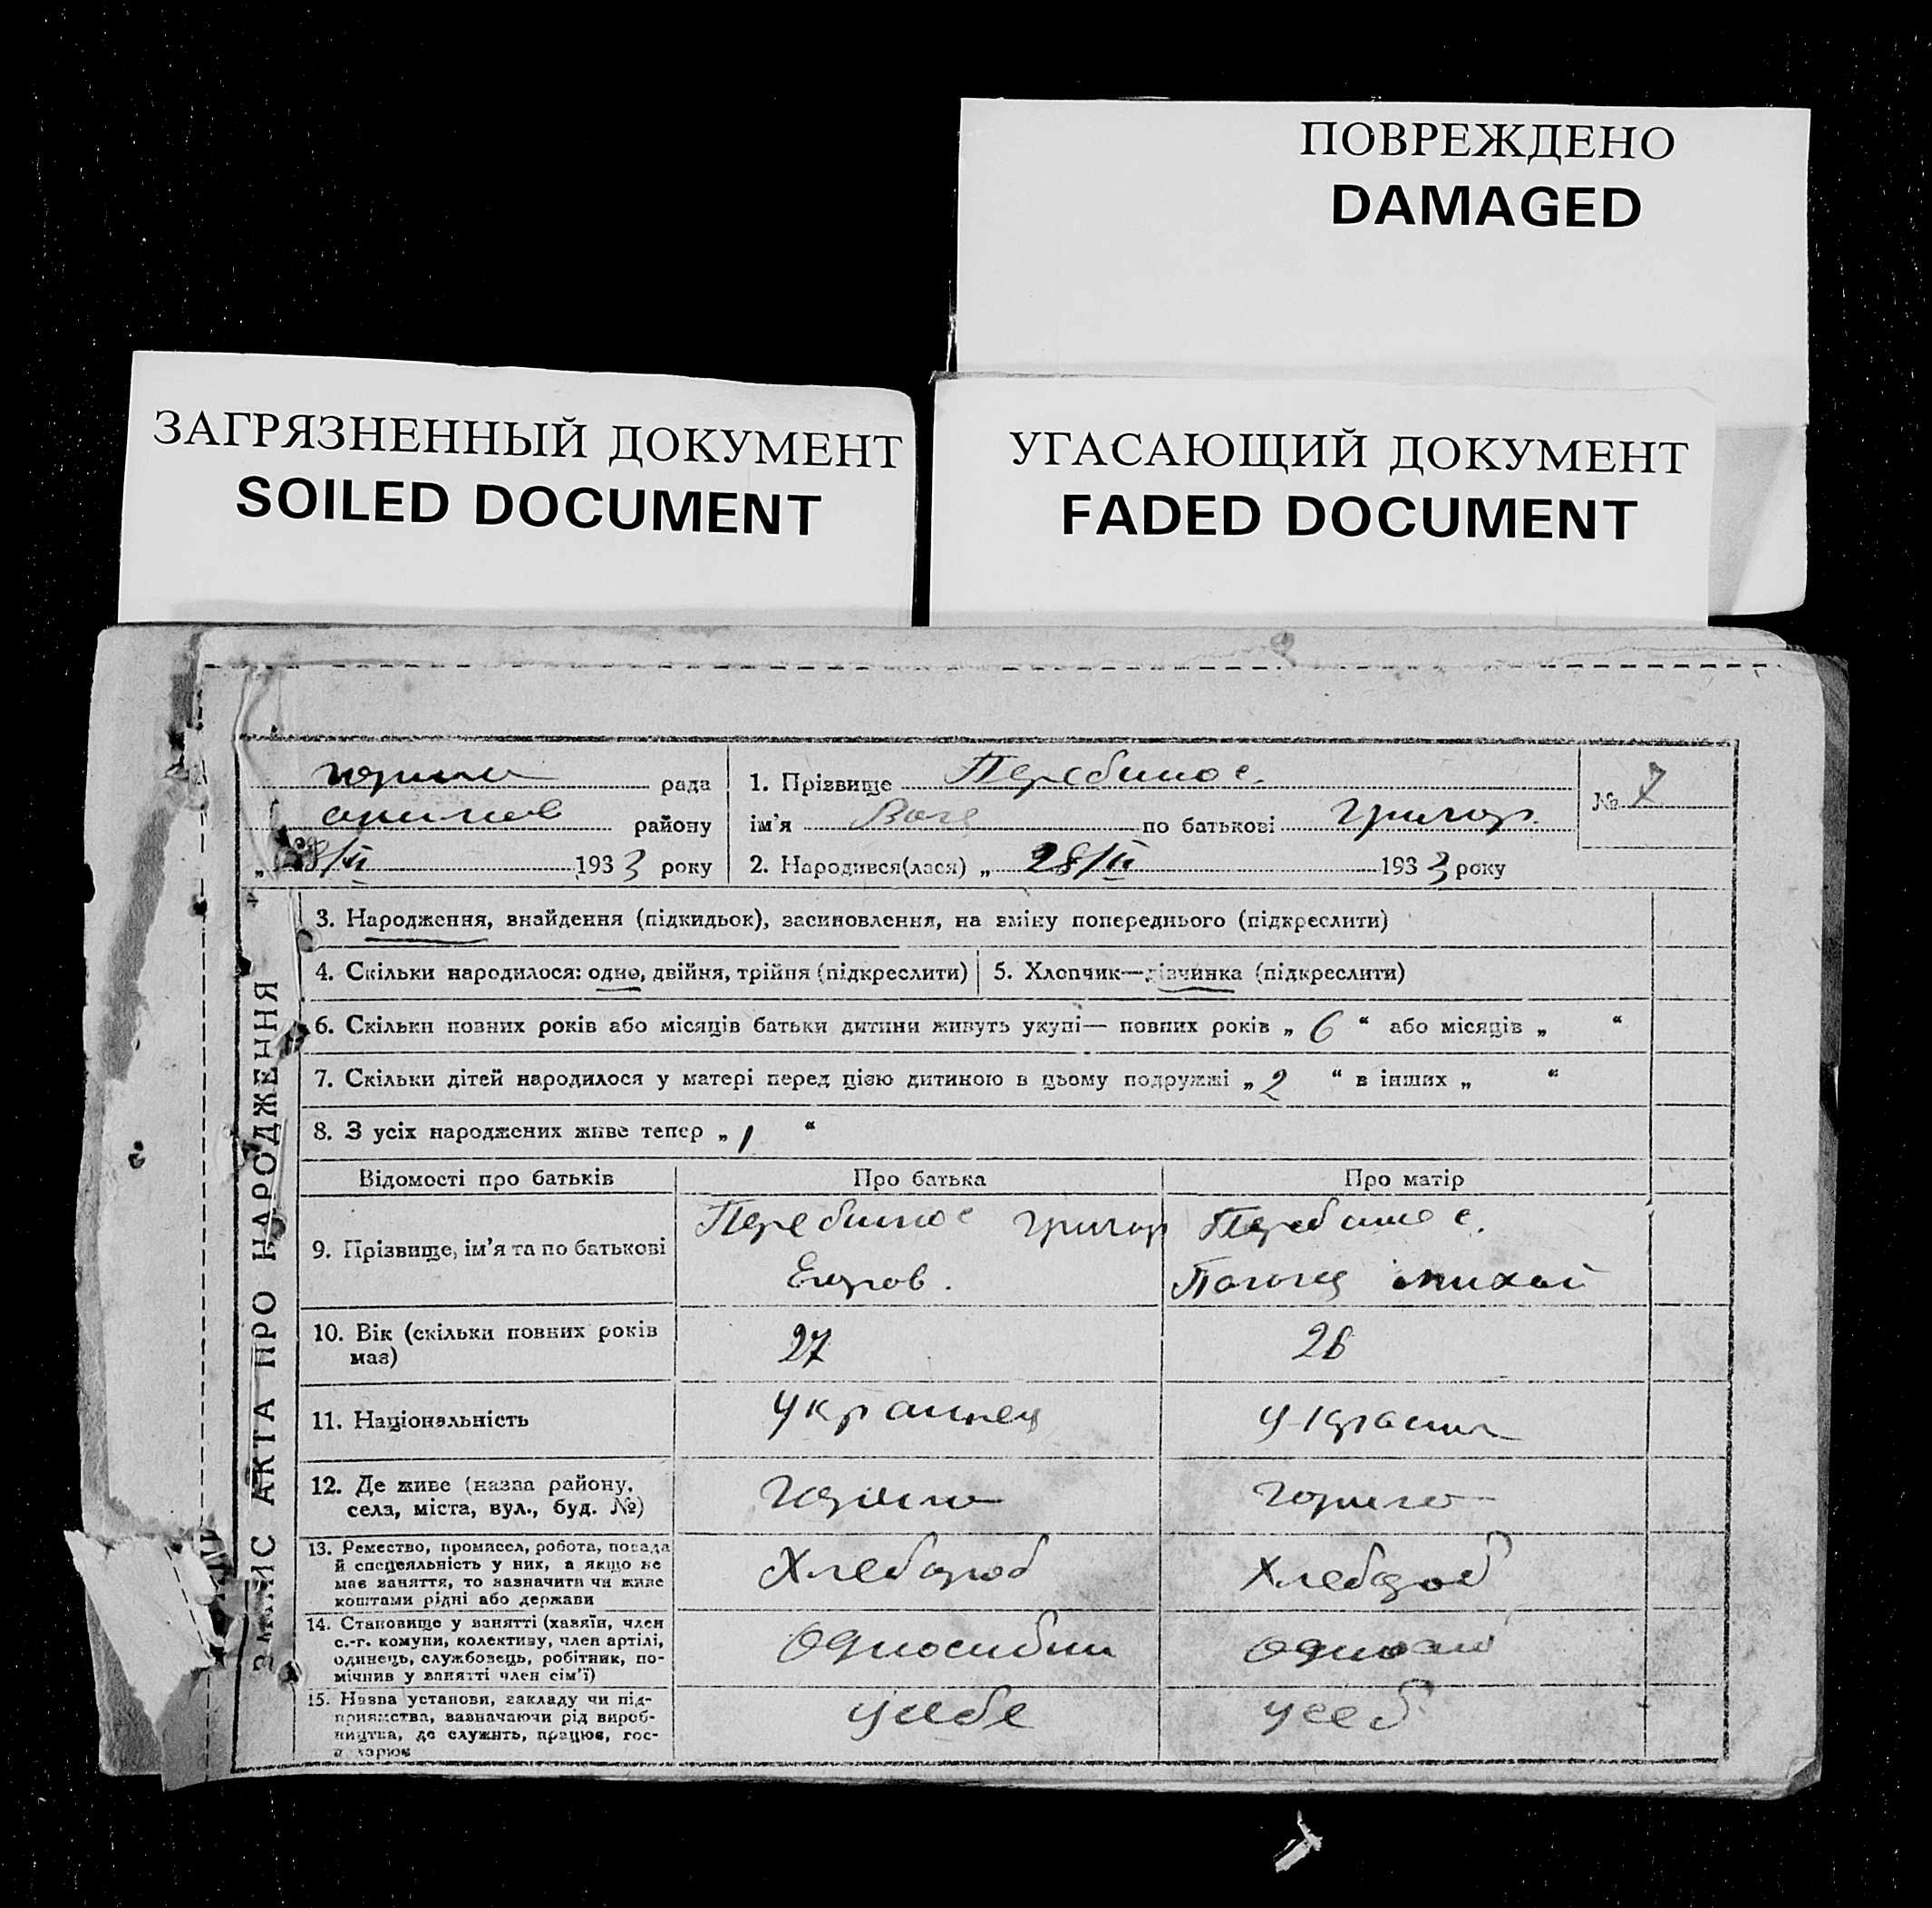 ПОВРЕЖДЕНО
DAMAGED
ЗАГРЯЗНЕННЫЙ ДОКУМЕНТ
SOILED DOCUMENT
УГАСАЮЩИЙ ДОКУМЕНТ
FADED DOCUMENT
рада
району
193 3 року
1. Прізвище
№ 7
ім'я по батькові Григор.
2. Народився(лася) „ 28/II 193 3 року
ЗАПИС АКТА ПРО НАРОДЖЕННЯ
3. Народження, внайдення (підкидьок), засиновлення, на зміну попереднього (підкреслити)
4. Скільки народилося: одно, двійня, трійня (підкреслити)
5. Хлопчик—дівчинка (підкреслити)
6. Скільки повних років або місяців батьки дитини живуть укупі— повних років „ 6 “ або місяців „ “
7. Скільки дітей народилося у матері перед цією дитиною в цьому подружжі „ 2 “ в інших „ “
8. З усіх народжених живе тепер „ 1 “
Відомості про батьків Про батька Про матір
9. Прізвище, ім'я та по батькові
Григор
Егоров.
10. Вік (скільки повних років
має)
27
11. Національність
украинец
12. Де живе (назва району,
села, міста, вул., буд. №)
13. Ремество, промисел, робота, посада
й спеціяльність у них, а якщо не
має заняття, то зазначити чи живе
коштами рідні або держави
Хлебороб Хлебороб
14. Становище у занятті (хазяїн, член
с.-г. комуни, колективу, член артілі,
одинець, службовець, робітник, по-
мічнив у занятті член сім'ї)
15. Назва установи, закладу чи під-
приємства, зазначаючи рід вироб-
ництва, де служить, працює, гос-
подарює
у себе у себ